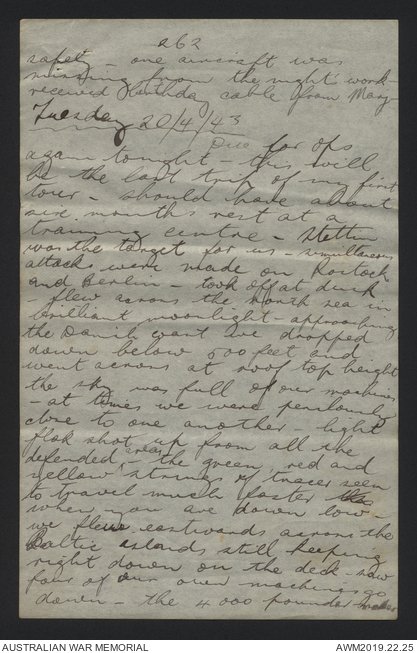 262
safety – one aircraft was
missing from the night's work –
received birthday cable from Mary
Tuesday 20/4/43
Due for ops
again tonight – this will
be the last trip of my first
tour – should have about
six months rest at a
training centre – Stettin
was the target for us – simultaneous
attacks were made on Rostock
and Berlin – took off at dusk
– flew across the North sea in
brilliant moonlight – approaching
the Danish coast we dropped
down below 500 feet and
went across at roof top height
the sky was full of our machines
– at times we were perilously
close to one another – light
flak shot up from all the
defended areas, the green, red and
yellow strings of tracer seem
to travel much faster
when you are down low –
we flew eastwards across the
Baltic islands still keeping
right down on the deck – saw
four of our own machines go
down – the 4000 pounder
AUSTRALIAN WAR MEMORIAL
AWM2019.22.25